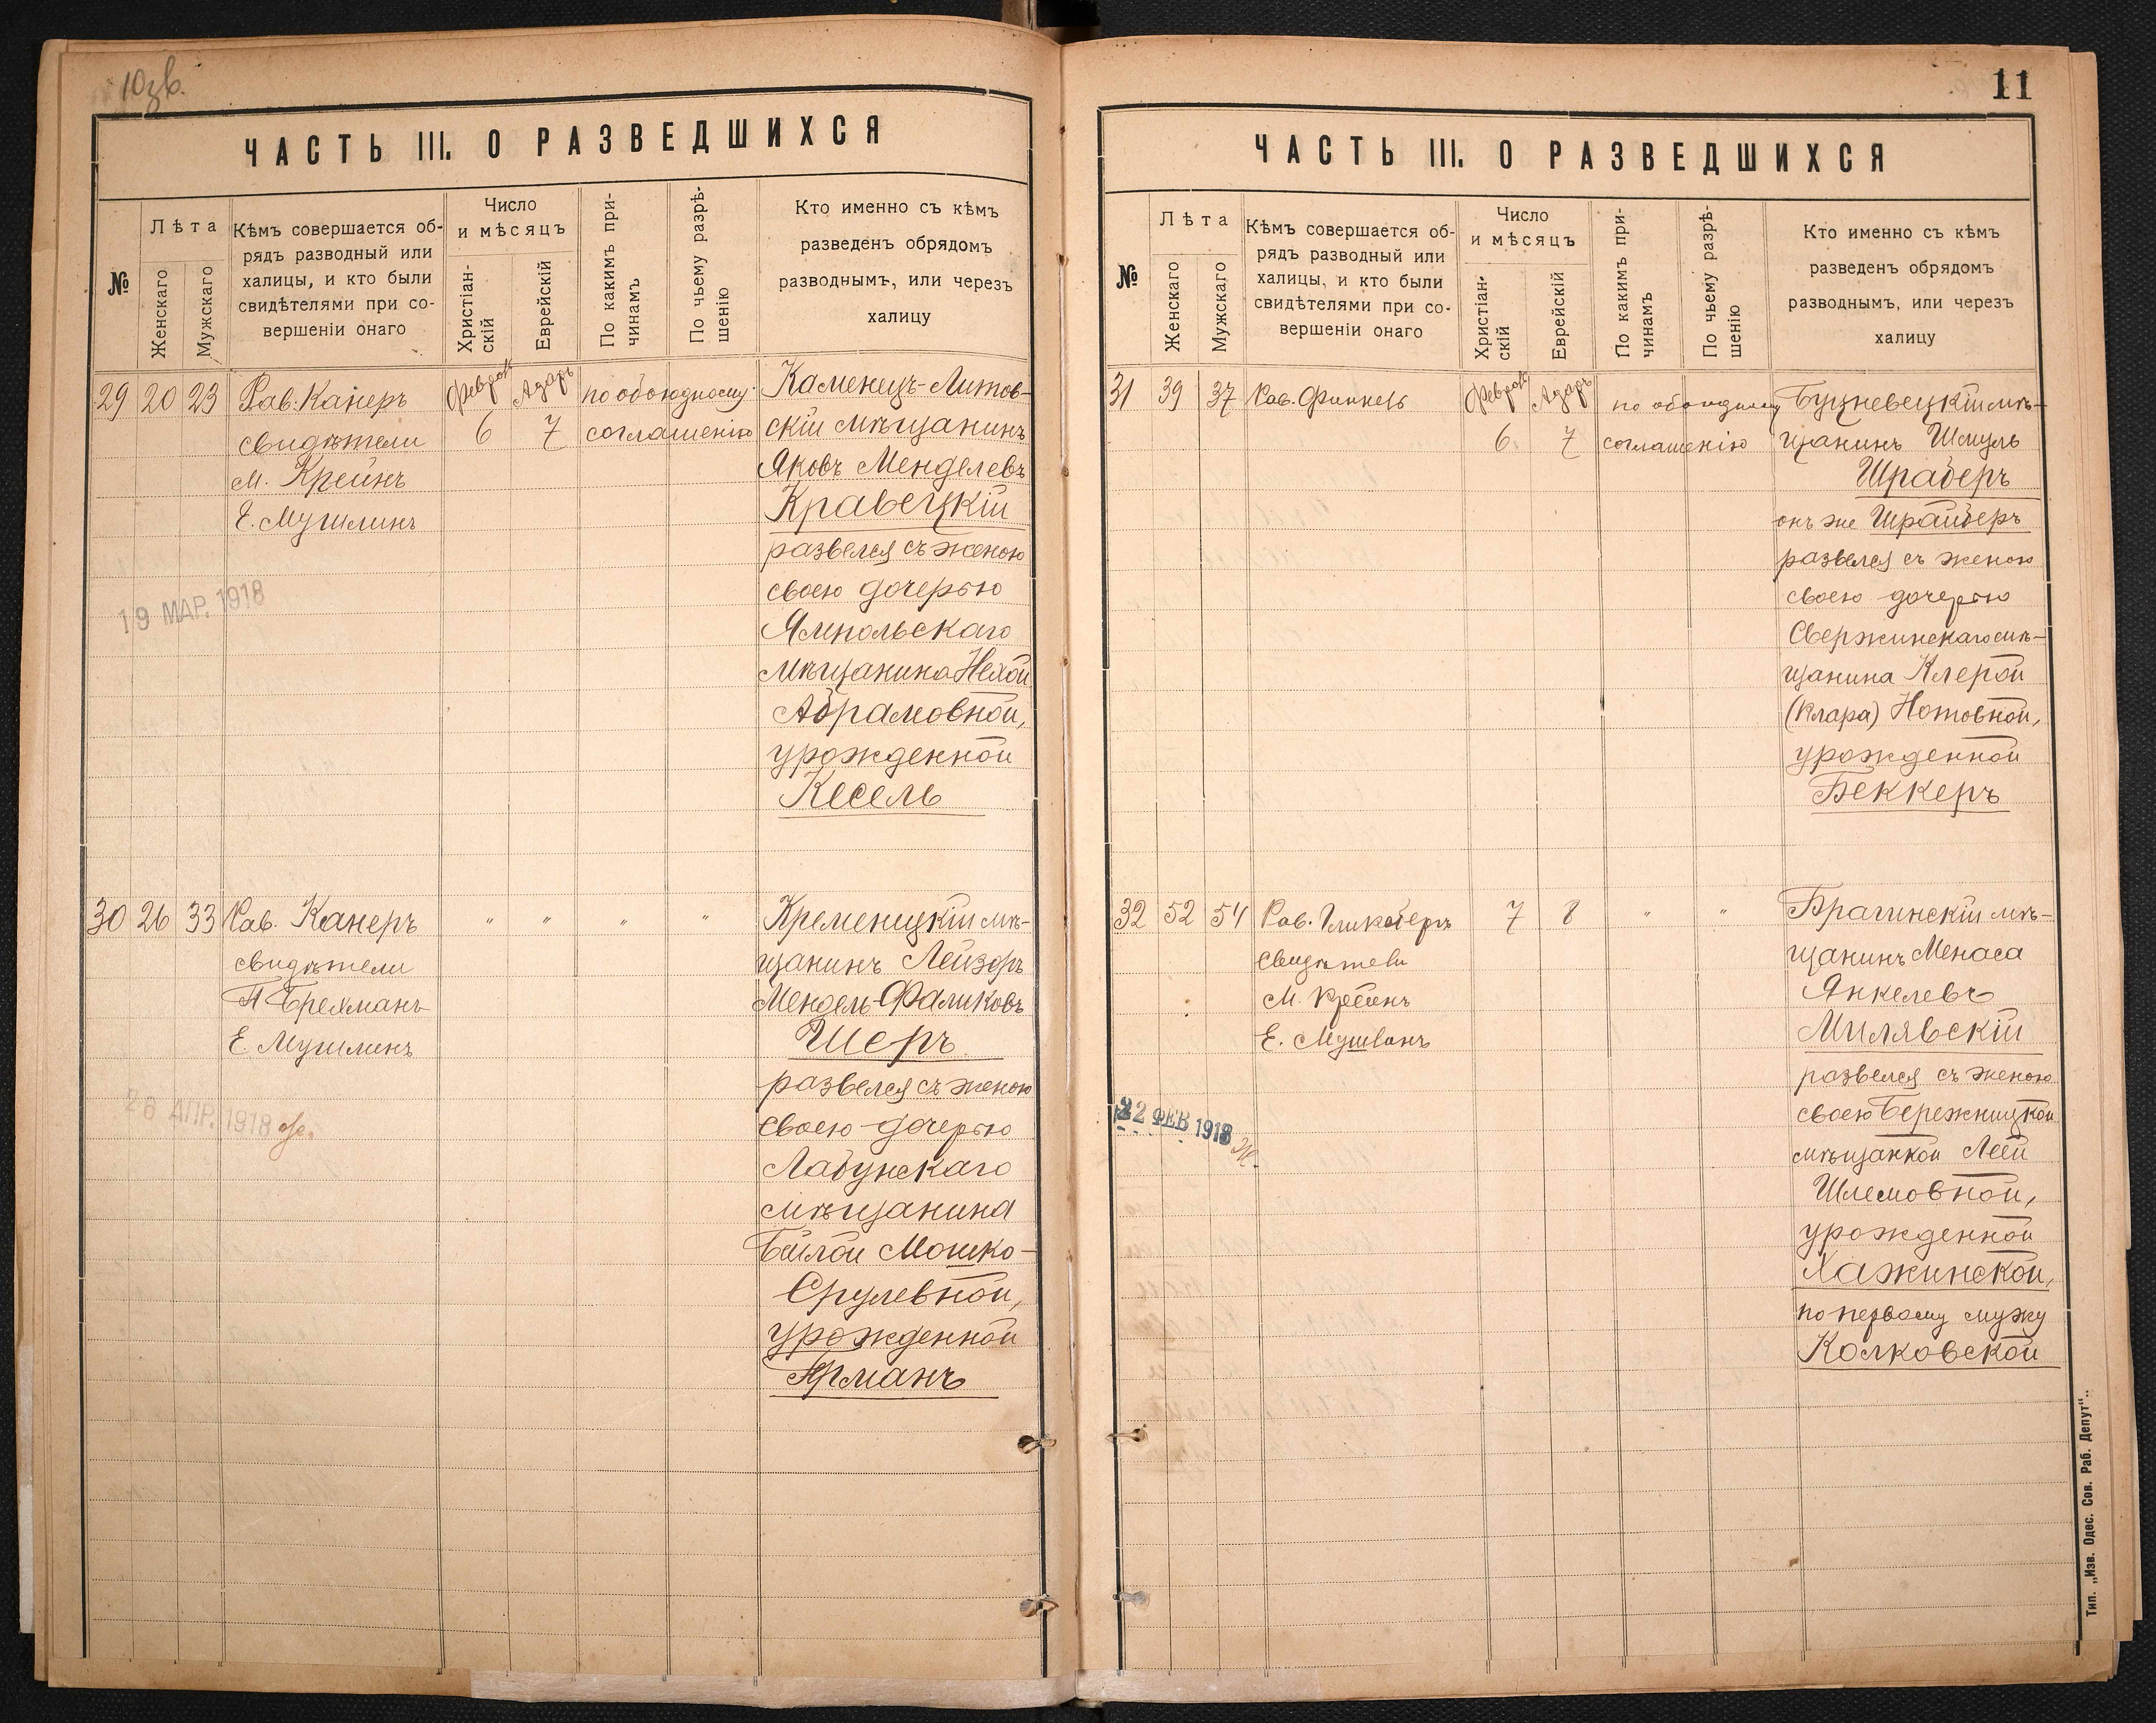 10 зв.
ЧАСТЬ III. О РАЗВЕДШИХСЯ
№
Лѣта
Женскаго
Мужскаго
Кѣмъ совершается об-
рядъ разводный или
халицы, и кто были
свидѣтелями при со-
вершеніи онаго
Число
и мѣсяцъ
Христіан-
скій
Еврейскій
По какимъ при-
чинамъ
По чьему разрѣ-
шенію
Кто именно съ кѣмъ
разведенъ обрядомъ
разводнымъ, или черезъ
халицу
29 20 23 Рав. Канеръ
свидѣтели
М. Крейнъ
Е. Мушлинъ
Адаръ
6 7
по обоюдному
соглашенію
Каменецъ-Литов-
скій мѣщанинъ
Яковъ Менделевъ
Кравецкій
развелся съ женою
своею дочерью
Ямпольскаго
мѣщанина Нехой
Абрамовной,
урожденной
Кесель
19 МАР. 1918
30 26 33 Рав. Канеръ
свидѣтели
Е. Мушлинъ
" " " "
Кременецкій мѣ-
щанинъ Лейзоръ
Мендель Фаликовъ
Шеръ
развелся съ женою
своею дочерью
Лабунскаго
мѣщанина
Бейлой Мошко-
Срулевной,
урожденной
28 АПР. 1918
11
ЧАСТЬ III. О РАЗВЕДШИХСЯ
№
Лѣта
Женскаго
Мужскаго
Кѣмъ совершается об-
рядъ разводный или
халицы, и кто были
свидѣтелями при со-
вершеніи онаго
Число
и мѣсяцъ
Христіан-
скій
Еврейскій
По какимъ при-
чинамъ
По чьему разрѣ-
шенію
Кто именно съ кѣмъ
разведенъ обрядомъ
разводнымъ, или черезъ
халицу
31 39 37 Рав.
Адаръ
6 7
по обоюдному
соглашенію
Буцневецкій мѣ-
щанинъ Шмуль
Шраберъ
онъ же Шрайберъ
развелся съ женою
своею дочерью
Свержинскаго мѣ-
щанина Клерой
(Клара) Нотовной,
урожденной
Беккеръ
32 52 54 Рав.
свидѣтели
М. Крейнъ
Е.
7 8
" "
Брагинскій мѣ-
щанинъ Менаса
Янкелевъ
Милявскій
развелся съ женою
своею Бережницкой
мѣщанкой Леей
Шлемовной,
урожденной
Хажинской,
по первому мужу
Колковской
22 ФЕВ 1918
Тип. „Изв. Одес. Сов. Раб. Депут“.